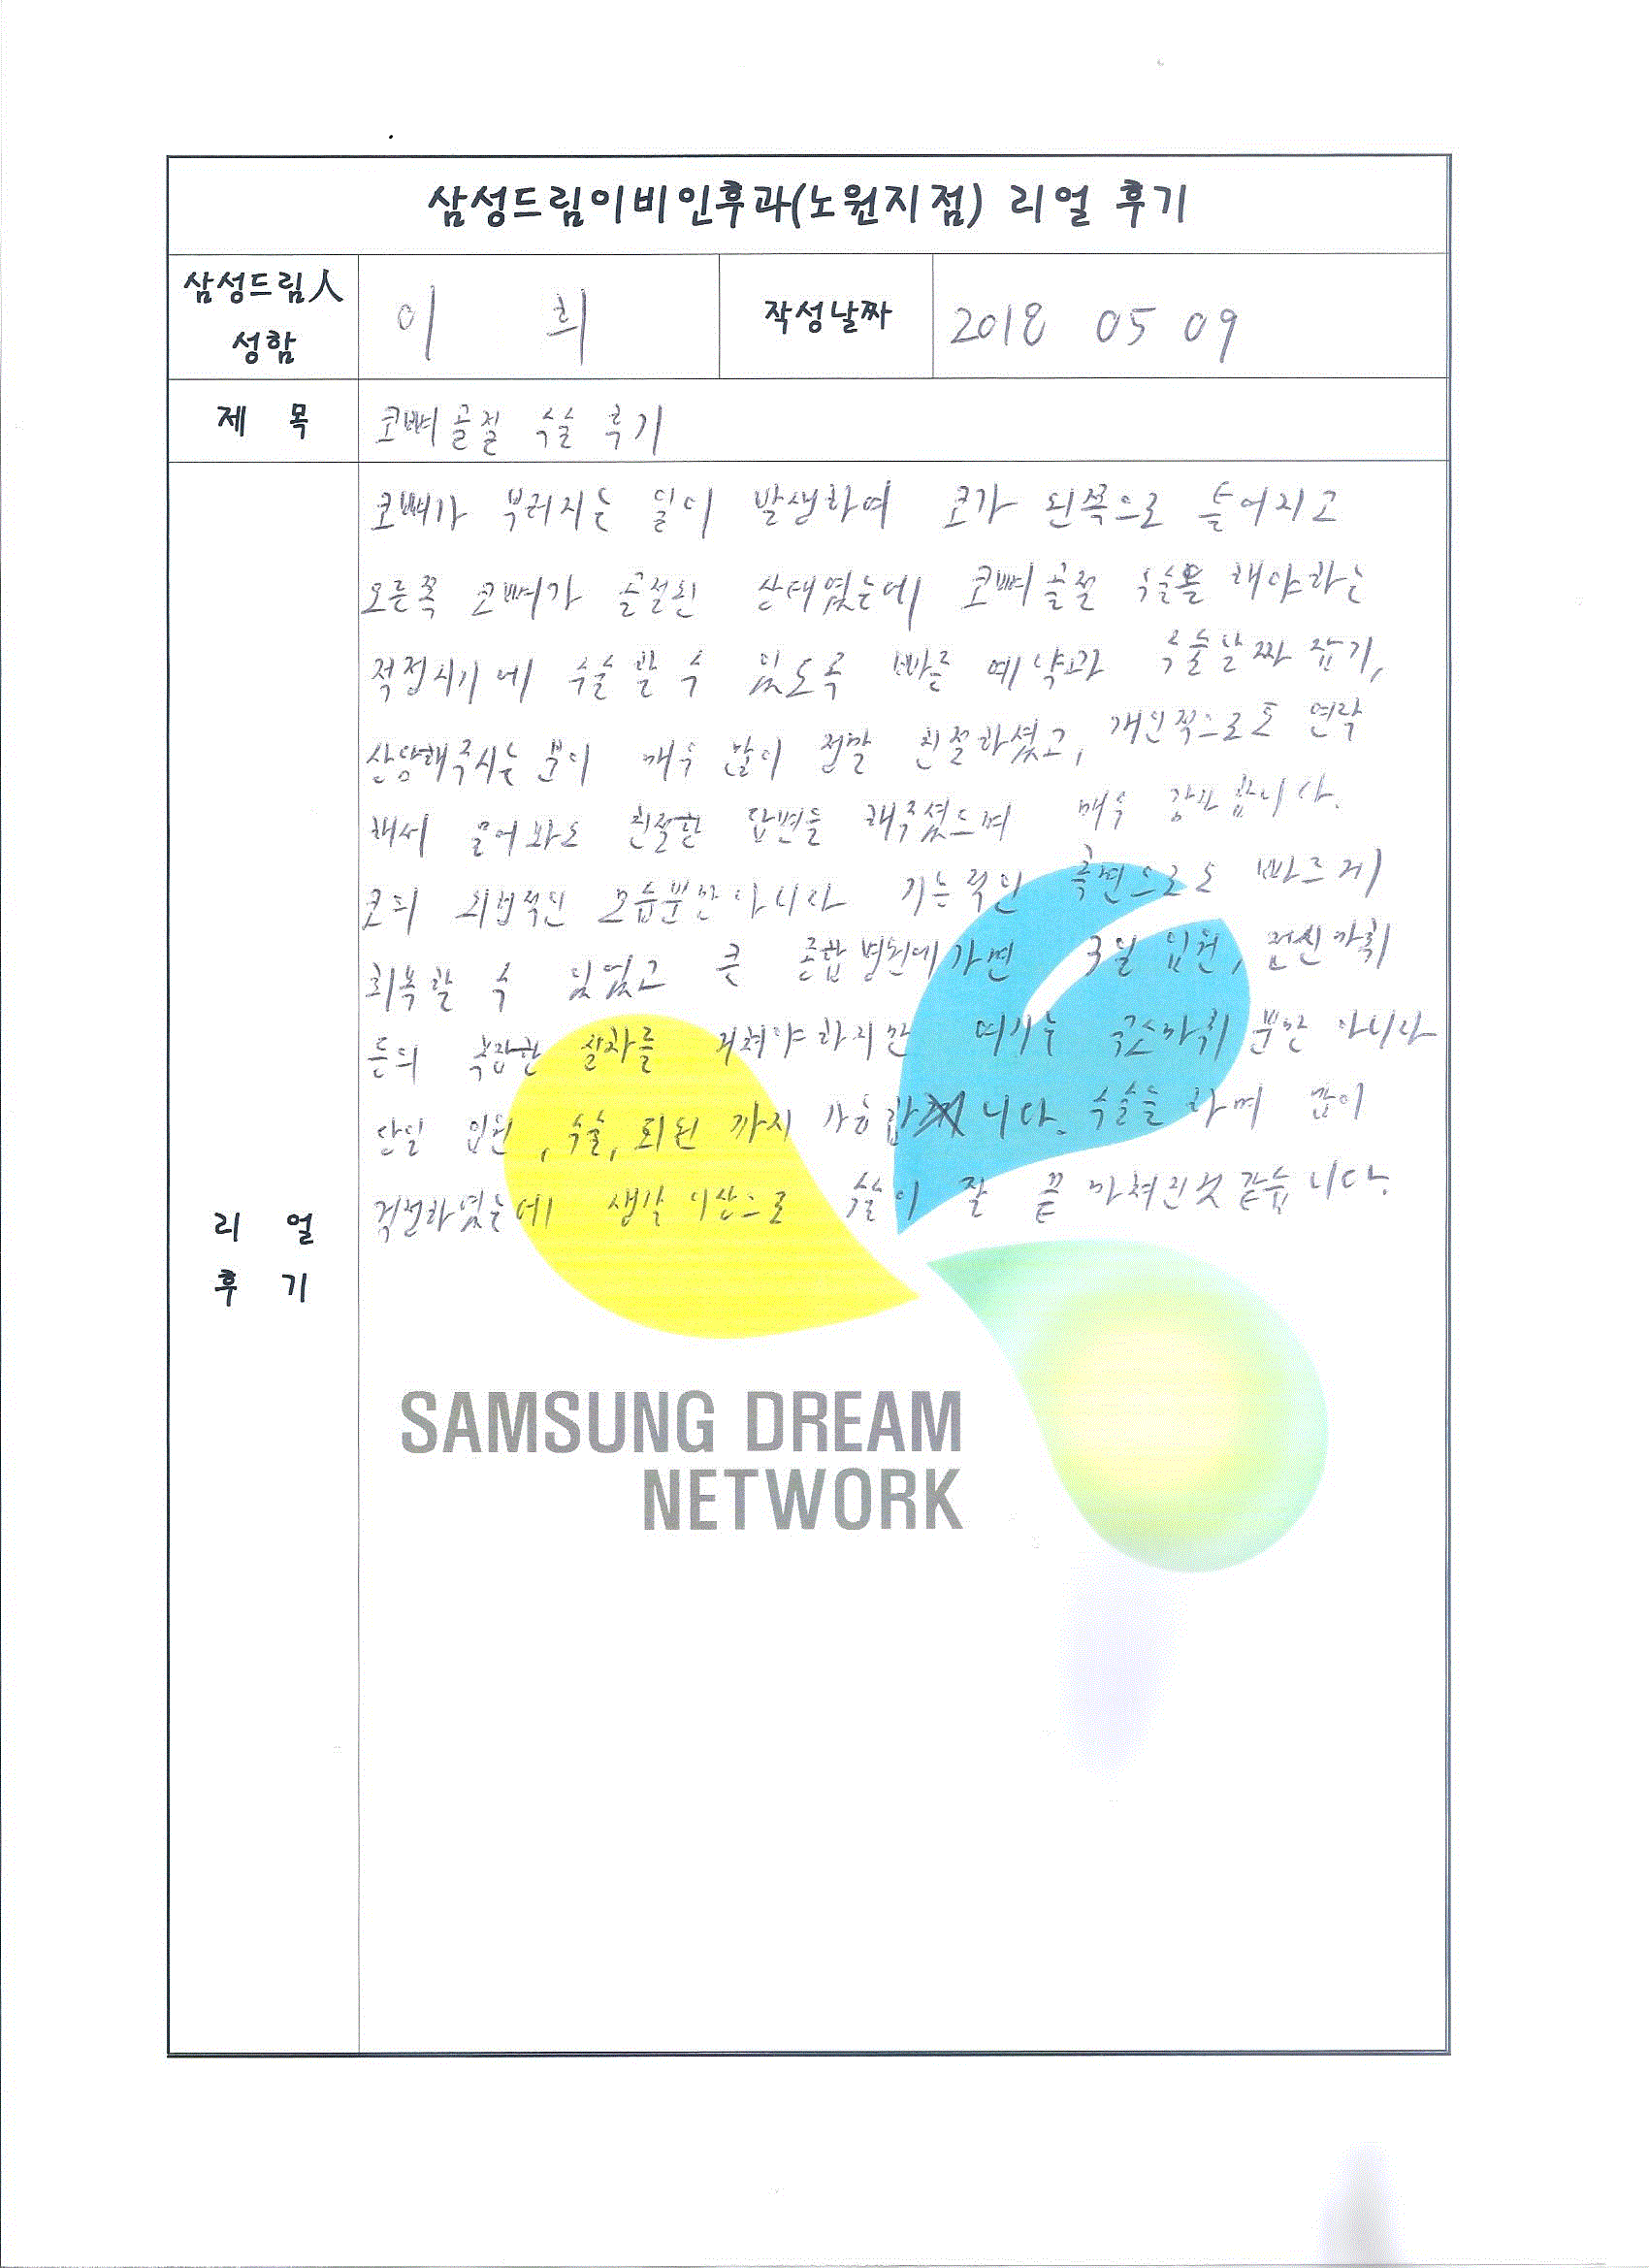 삼성드림이비인후과(노원지점) 리얼 후기
삼성드림人
성함
이 희
작성날짜
2018 05 09
제 목
코뼈골절 수술 후기
리 얼
후 기
코뼈가 부러지는 일이 발생하여 코가 왼쪽으로 틀어지고
오른쪽 코뼈가 골절된 상태였는데 코뼈골절 수술을 해야하는
적접시기에 수술할 수 있도록 빠른 예약과 수술날짜 잡기,
상담해주시는 분이 매우 많이 정말 친절하셨고, 개인적으로도 연락
해서 물어봐도 친절한 답변들 해주셨으며 매우 감사합니다.
코의 외형적인 모습뿐만 아니라 기능적인 측면으로도 빠르게
회복할 수 있었고 큰 종합병원에 가면 3일 입원, 전신마취
등의 복잡한 절차를 거쳐야 하지만 여기는 국소마취 뿐만 아니라
당일 입원, 수술, 퇴원 까지 가능합니다. 수술을 하며 많이
걱정하였는데 생각 이상으로 수술이 잘 끝 마쳐진것 같습니다.
SAMSUNG DREAM
NETWORK